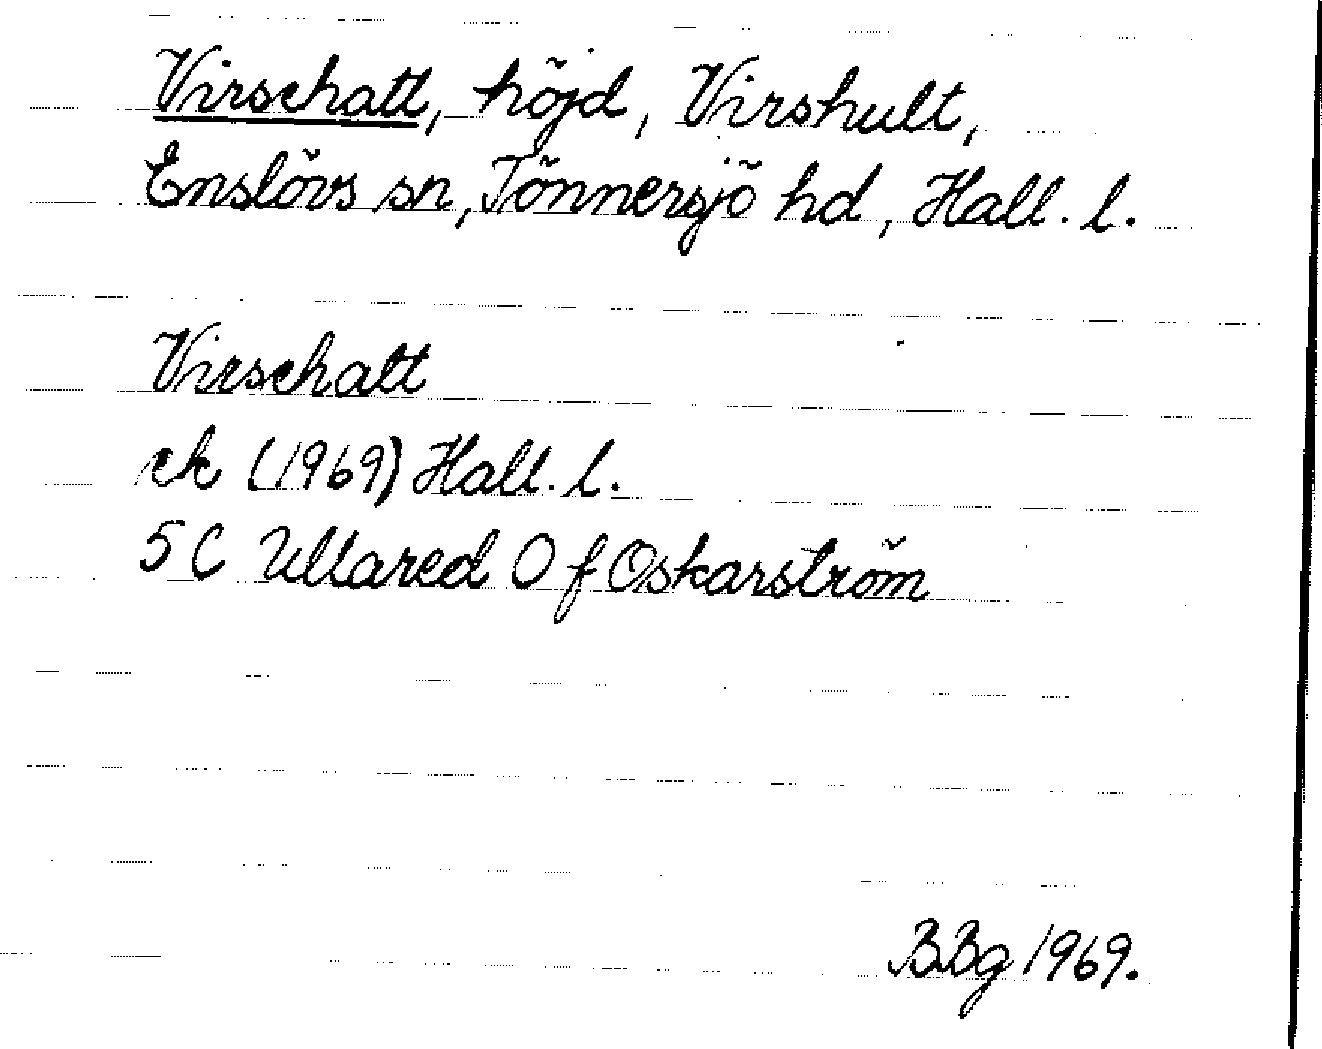 Virschatt, höjd, Virshult,
Enslövs sn, Tönnersjö hd, Hall. l.
Virschatt
ek (1969) Hall. l.
5 C Ullared O f Oskarström
BBg 1969.